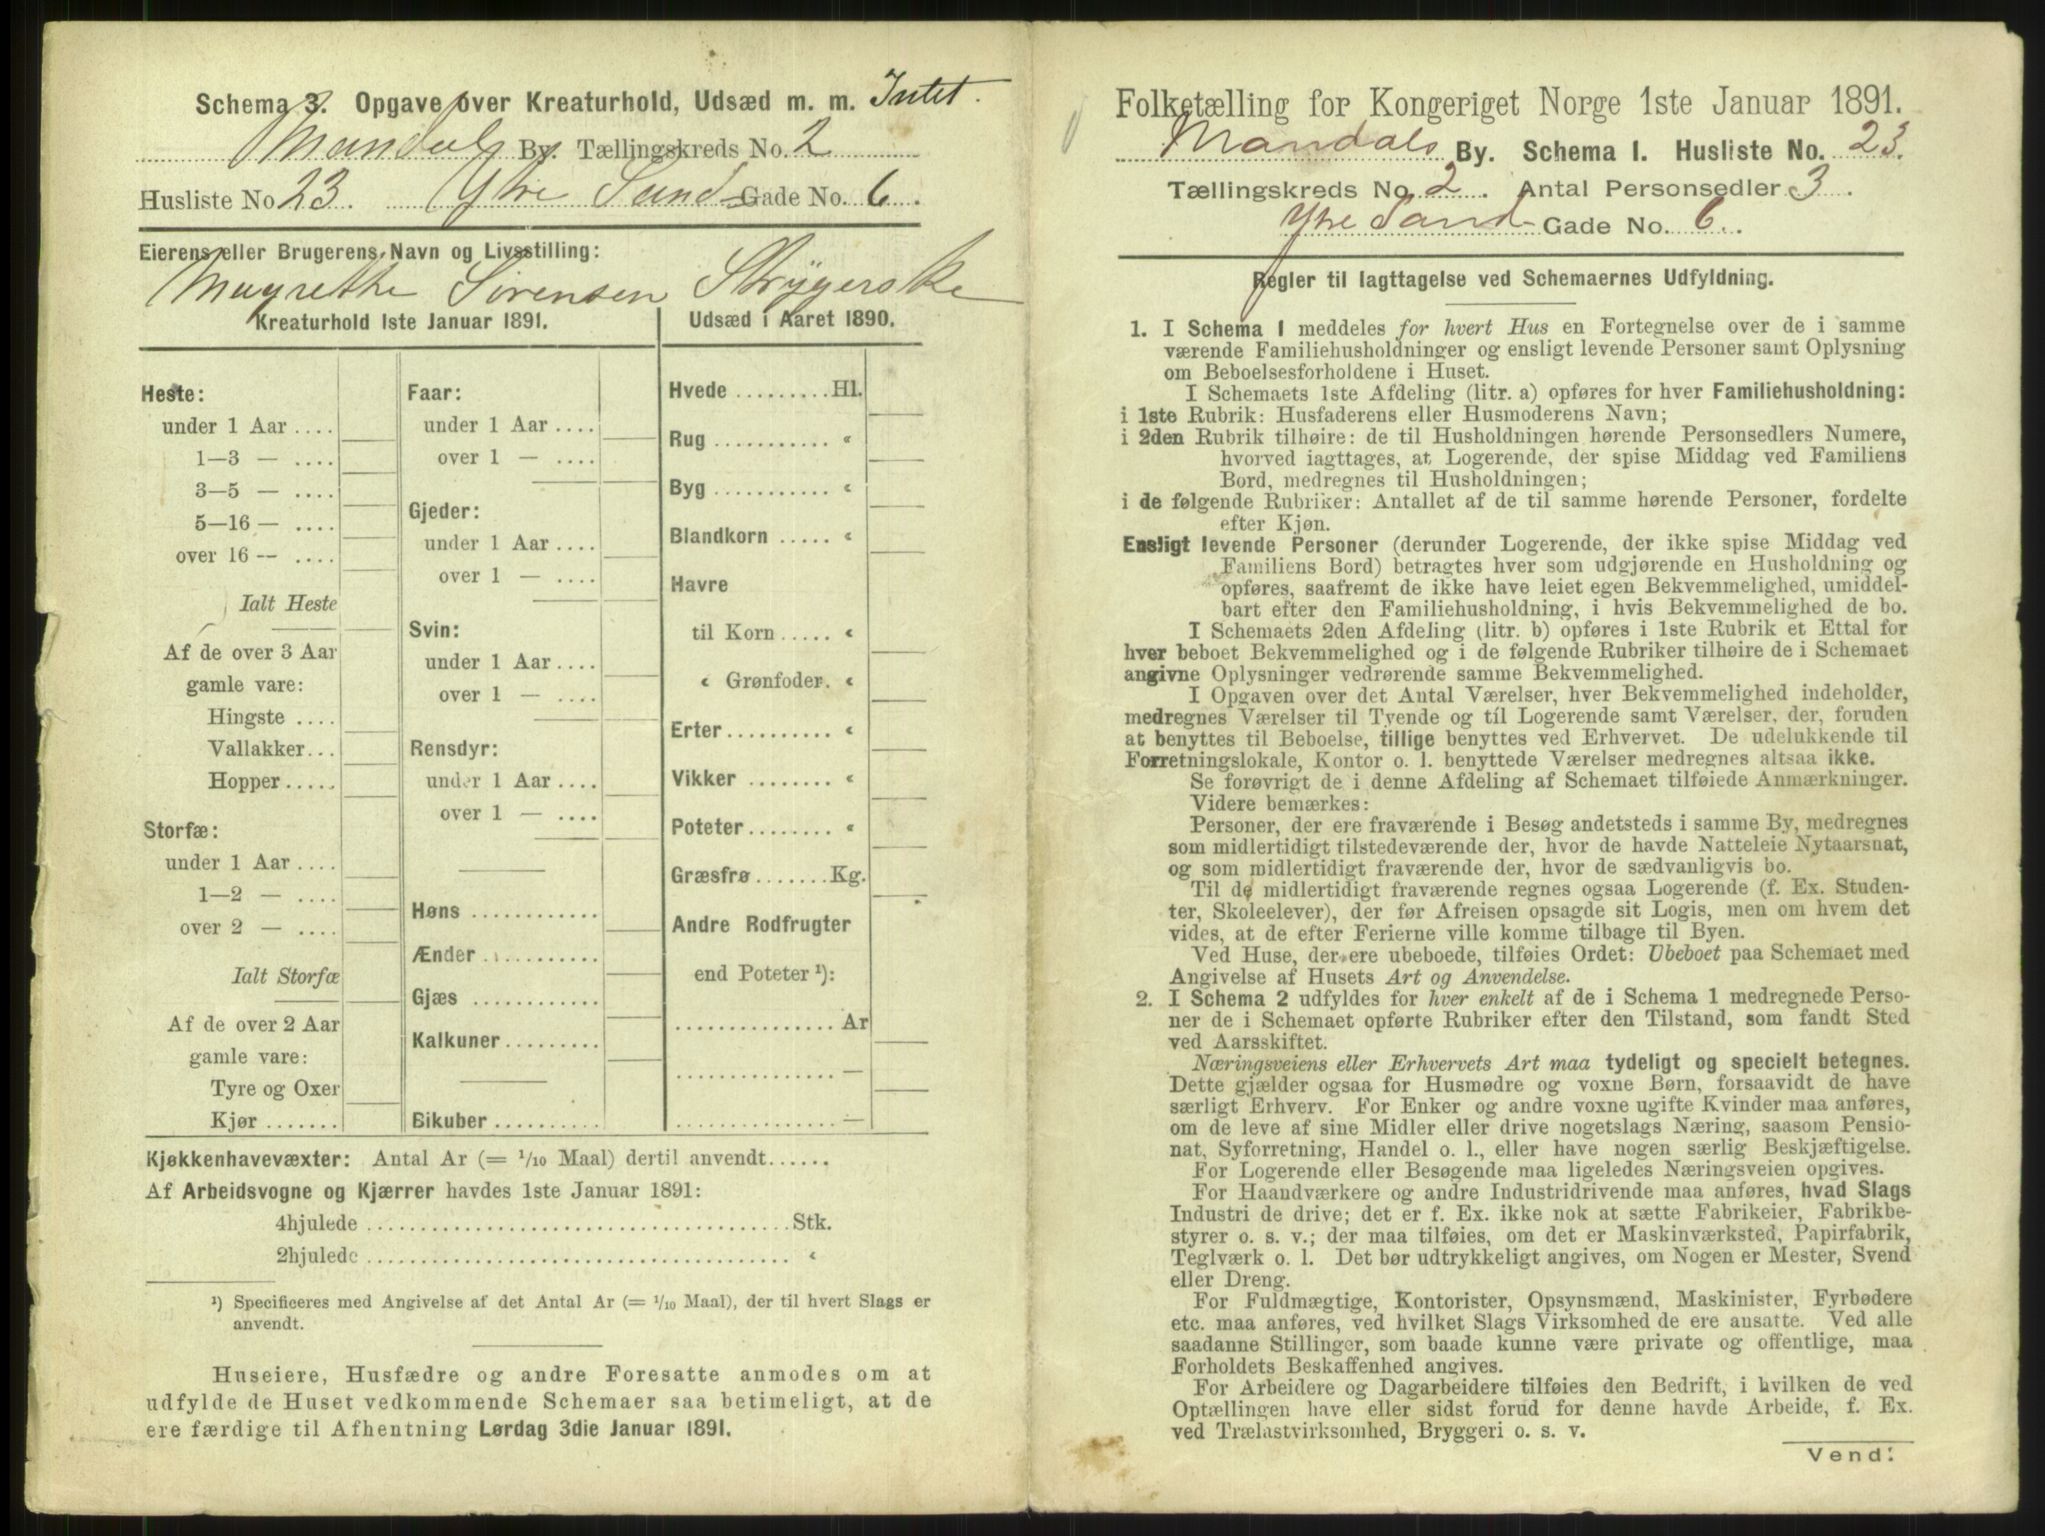 Schema 3. Opgave over Kreaturhold, Udsæd m. m. Intet.
Mandals By. Tællingskreds No. 2
Husliste No 23. Ytre Sand Gade No. 6.
Eierens eller Brugerens Navn og Livsstilling:
Magrethe Sörensen Strygerske
Kreaturhold 1ste Januar 1891.
Heste:
under 1 Aar ....
1—3 — ....
3—5 — ....
5—16 — ....
over 16 — ....
Ialt Heste
Af de over 3 Aar
gamle vare:
Hingste ....
Vallakker...
Hopper.....
Storfæ:
under 1 Aar ....
1—2 — ....
over 2 — ....
Ialt Storfæ
Af de over 2 Aar
gamle vare:
Tyre og Oxer
Kjør .......
Faar:
under 1 Aar ....
over 1 — ....
Gjeder:
under 1 Aar ....
over 1 — ....
Svin:
under 1 Aar ....
over 1 — ....
Rensdyr:
under 1 Aar ....
over 1 — ....
Høns ............
Ænder ...........
Gjæs ............
Kalkuner.........
Bikuber ..........
Udsæd i Aaret 1890.
Hvede .........Hl.
Rug ........... «
Byg ........... «
Blandkorn ..... «
Havre
til Korn ..... «
« Grønfoder. «
Erter .......... «
Vikker ......... «
Poteter ........ «
Græsfrø .......Kg.
Andre Rodfrugter
end Poteter ¹):
............... Ar
............... —
............... —
Kjøkkenhavevæxter: Antal Ar (= 1/10 Maal) dertil anvendt......
Af Arbeidsvogne og Kjærrer havdes 1ste Januar 1891:
4hjulede ........................................Stk.
2hjulede ........................................ «
¹) Specificeres med Angivelse af det Antal Ar (= 1/10 Maal), der til hvert Slags er
anvendt.
Huseiere, Husfædre og andre Foresatte anmodes om at
udfylde de Huset vedkommende Schemaer saa betimeligt, at de
ere færdige til Afhentning Lørdag 3die Januar 1891.
Folketælling for Kongeriget Norge 1ste Januar 1891.
Mandals By. Schema 1. Husliste No. 23.
Tællingskreds No. 2. Antal Personsedler 3.
Ytre Sand Gade No. 6.
Regler til Iagttagelse ved Schemaernes Udfyldning.
1. I Schema 1 meddeles for hvert Hus en Fortegnelse over de i samme
værende Familiehusholdninger og ensligt levende Personer samt Oplysning
om Beboelsesforholdene i Huset.
I Schemaets 1ste Afdeling (litr. a) opføres for hver Familiehusholdning:
i 1ste Rubrik: Husfaderens eller Husmoderens Navn;
i 2den Rubrik tilhøire: de til Husholdningen hørende Personsedlers Numere,
hvorved iagttages, at Logerende, der spise Middag ved Familiens
Bord, medregnes til Husholdningen;
i de følgende Rubriker: Antallet af de til samme hørende Personer, fordelte
efter Kjøn.
Ensligt levende Personer (derunder Logerende, der ikke spise Middag ved
Familiens Bord) betragtes hver som udgjørende en Husholdning og
opføres, saafremt de ikke have leiet egen Bekvemmelighed, umiddel-
bart efter den Familiehusholdning, i hvis Bekvemmelighed de bo.
I Schemaets 2den Afdeling (litr. b) opføres i 1ste Rubrik et Ettal for
hver beboet Bekvemmelighed og i de følgende Rubriker tilhøire de i Schemaet
angivne Oplysninger vedrørende samme Bekvemmelighed.
I Opgaven over det Antal Værelser, hver Bekvemmelighed indeholder,
medregnes Værelser til Tyende og til Logerende samt Værelser, der, foruden
at benyttes til Beboelse, tillige benyttes ved Erhvervet. De udelukkende til
Forretningslokale, Kontor o. l. benyttede Værelser medregnes altsaa ikke.
Se forøvrigt de i denne Afdeling af Schemaet tilføiede Anmærkninger.
Videre bemærkes:
Personer, der ere fraværende i Besøg andetsteds i samme By, medregnes
som midlertidigt tilstedeværende der, hvor de havde Natteleie Nytaarsnat,
og som midlertidigt fraværende der, hvor de sædvanligvis bo.
Til de midlertidigt fraværende regnes ogsaa Logerende (f. Ex. Studen-
ter, Skoleelever), der før Afreisen opsagde sit Logis, men om hvem det
vides, at de efter Ferierne ville komme tilbage til Byen.
Ved Huse, der ere ubeboede, tilføies Ordet: Ubeboet paa Schemaet med
Angivelse af Husets Art og Anvendelse.
2. I Schema 2 udfyldes for hver enkelt af de i Schema 1 medregnede Perso-
ner de i Schemaet opførte Rubriker efter den Tilstand, som fandt Sted
ved Aarsskiftet.
Næringsveiens eller Erhvervets Art maa tydeligt og specielt betegnes.
Dette gjælder ogsaa for Husmødre og voxne Børn, forsaavidt de have
særligt Erhverv. For Enker og andre voxne ugifte Kvinder maa anføres,
om de leve af sine Midler eller drive nogetslags Næring, saasom Pensio-
nat, Syforretning, Handel o. l., eller have nogen særlig Beskjæftigelse.
For Logerende eller Besøgende maa ligeledes Næringsveien opgives.
For Haandværkere og andre Industridrivende maa anføres, hvad Slags
Industri de drive; det er f. Ex. ikke nok at sætte Fabrikeier, Fabrikbe-
styrer o. s. v.; der maa tilføies, om det er Maskinværksted, Papirfabrik,
Teglværk o. l. Det bør udtrykkeligt angives, om Nogen er Mester, Svend
eller Dreng.
For Fuldmægtige, Kontorister, Opsynsmænd, Maskinister, Fyrbødere
etc. maa anføres, ved hvilket Slags Virksomhed de ere ansatte. Ved alle
saadanne Stillinger, som baade kunne være private og offentlige, maa
Forholdets Beskaffenhed angives.
For Arbeidere og Dagarbeidere tilføies den Bedrift, i hvilken de ved
Optællingen have eller sidst forud for denne havde Arbeide, f. Ex.
ved Trælastvirksomhed, Bryggeri o. s. v.
Vend!